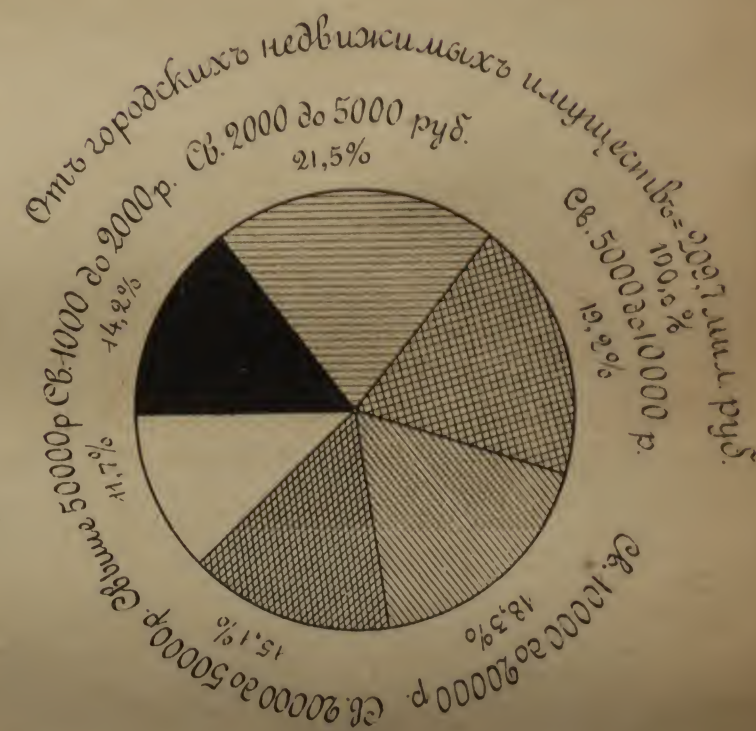 Отъ городскихъ недвижимыхъ имуществъ = 209,7 мил. руб.
100,0%
Св. 1000 до 2000 р.
14,2%
Св. 2000 до 5000 руб.
21,5%
Св. 5000 до 10000 р.
19,2%
Св. 10000 до 20000 р.
18,3%
Св. 20000 до 50000 р.
15,1%
Свыше 50000 р
11,7%